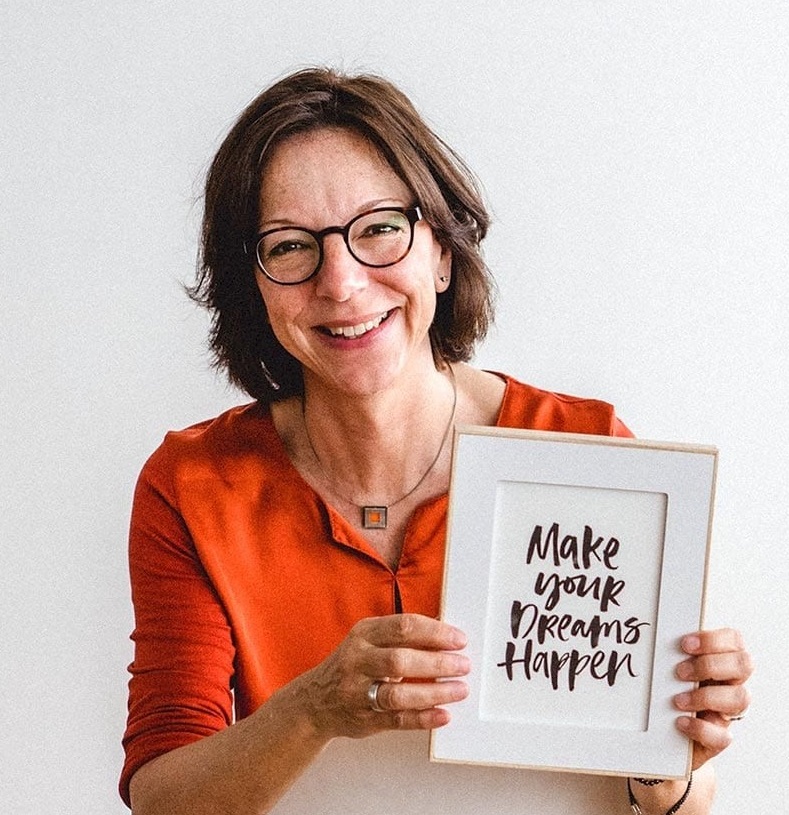 Make
your
Dreams
Happen